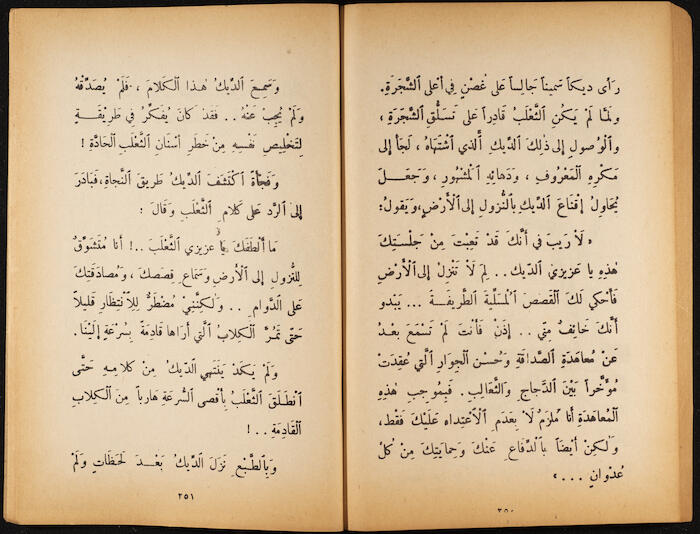 رَأى ديكاً سَميناً جالِساً على غُصْنٍ في أعْلى الشَّجَرَةِ.
ولَمَّا لَمْ يَكُنِ الثَّعْلَبُ قادِراً على تَسَلُّقِ الشَّجَرَةِ ،
والْوُصولِ إلى ذٰلِكَ الدِّيكِ الَّذي اشْتَهاهُ ، لَجَأ إلى
مَكْرِهِ الْمَعْروفِ ، وَدَهائِهِ الْمَشْهورِ ، وَجَعَلَ
يُحاوِلُ إقْناعَ الدِّيكِ بالنُّزولِ إلى الْأَرْضِ ، ويَقولُ:
« لا رَيْبَ في أنَّكَ قَدْ تَعِبْتَ مِنْ جَلْسَتِكَ
هٰذِهِ يا عَزيزي الدِّيكَ.. لِمَ لا تَنْزِلُ إلى الْأَرْضِ
فَأحْكي لَكَ الْقَصَصَ الْمُسَلِّيَةَ الطَّريفَةَ ... يَبْدو
أنَّكَ خائِفٌ مِنِّي .. إذَنْ فَأنْتَ لَمْ تَسْمَعْ بَعْدُ
عَنْ مُعاهَدَةِ الصَّداقَةِ وحُسْنِ الْجِوارِ الَّتي عُقِدَتْ
مُؤَخَّراً بَيْنَ الدَّجاجِ والثَّعالِبِ . فَبِموجِبِ هٰذِهِ
الْمُعاهَدَةِ أنا مُلْزَمٌ لا بِعَدَمِ الاعْتِداءِ عَلَيْكَ فَقَط،
ولٰكِنْ أيْضاً بالدِّفاعِ عَنْكَ وحِمايَتِكَ مِنْ كُلِّ
عُدْوانٍ ... »
٢٥٠
وَسَمِعَ الدِّيكُ هٰذا الْكَلامَ ، فَلَمْ يُصَدِّقْهُ
وَلَمْ يُجِبْ عَنْهُ .. فَقَدْ كانَ يُفَكِّرُ في طَريقَةٍ
لِتَخْليصِ نَفْسِهِ مِنْ خَطَرِ أسْنانِ الثَّعْلَبِ الْحادَّةِ !
وَفَجْأةً اكْتَشَفَ الدِّيكُ طَريقَ النَّجاةِ ، فَبادَرَ
إلى الرَّدِّ على كَلامِ الثَّعْلَبِ وَقالَ :
ما ألْطَفَكَ يا عزيزي الثَّعْلَبَ ..! أنا مُتَشَوِّقٌ
للنُّزولِ إلى الْأَرْضِ وسَماعِ قِصَصِكَ ، ومُصادَقَتِكَ
على الدَّوامِ .. ولٰكِنَّني مُضْطَرٌّ لِلانْتِظارِ قَليلاً
حَتَّى تَمُرَّ الْكِلابُ الَّتي أراها قادِمَةً بِسُرْعَةٍ إلَيْنا.
وَلَمْ يَكَدْ يَنْتَهي الدِّيكُ مِنْ كَلامِهِ حَتَّى
انْطَلَقَ الثَّعْلَبُ بِأقْصى السُّرْعَةِ هارِباً مِنَ الْكِلابِ
الْقادِمَةِ .. !
وَبِالطَّبْعِ نَزَلَ الدِّيكُ بَعْدَ لَحَظاتٍ وَلَمْ
٢٥١